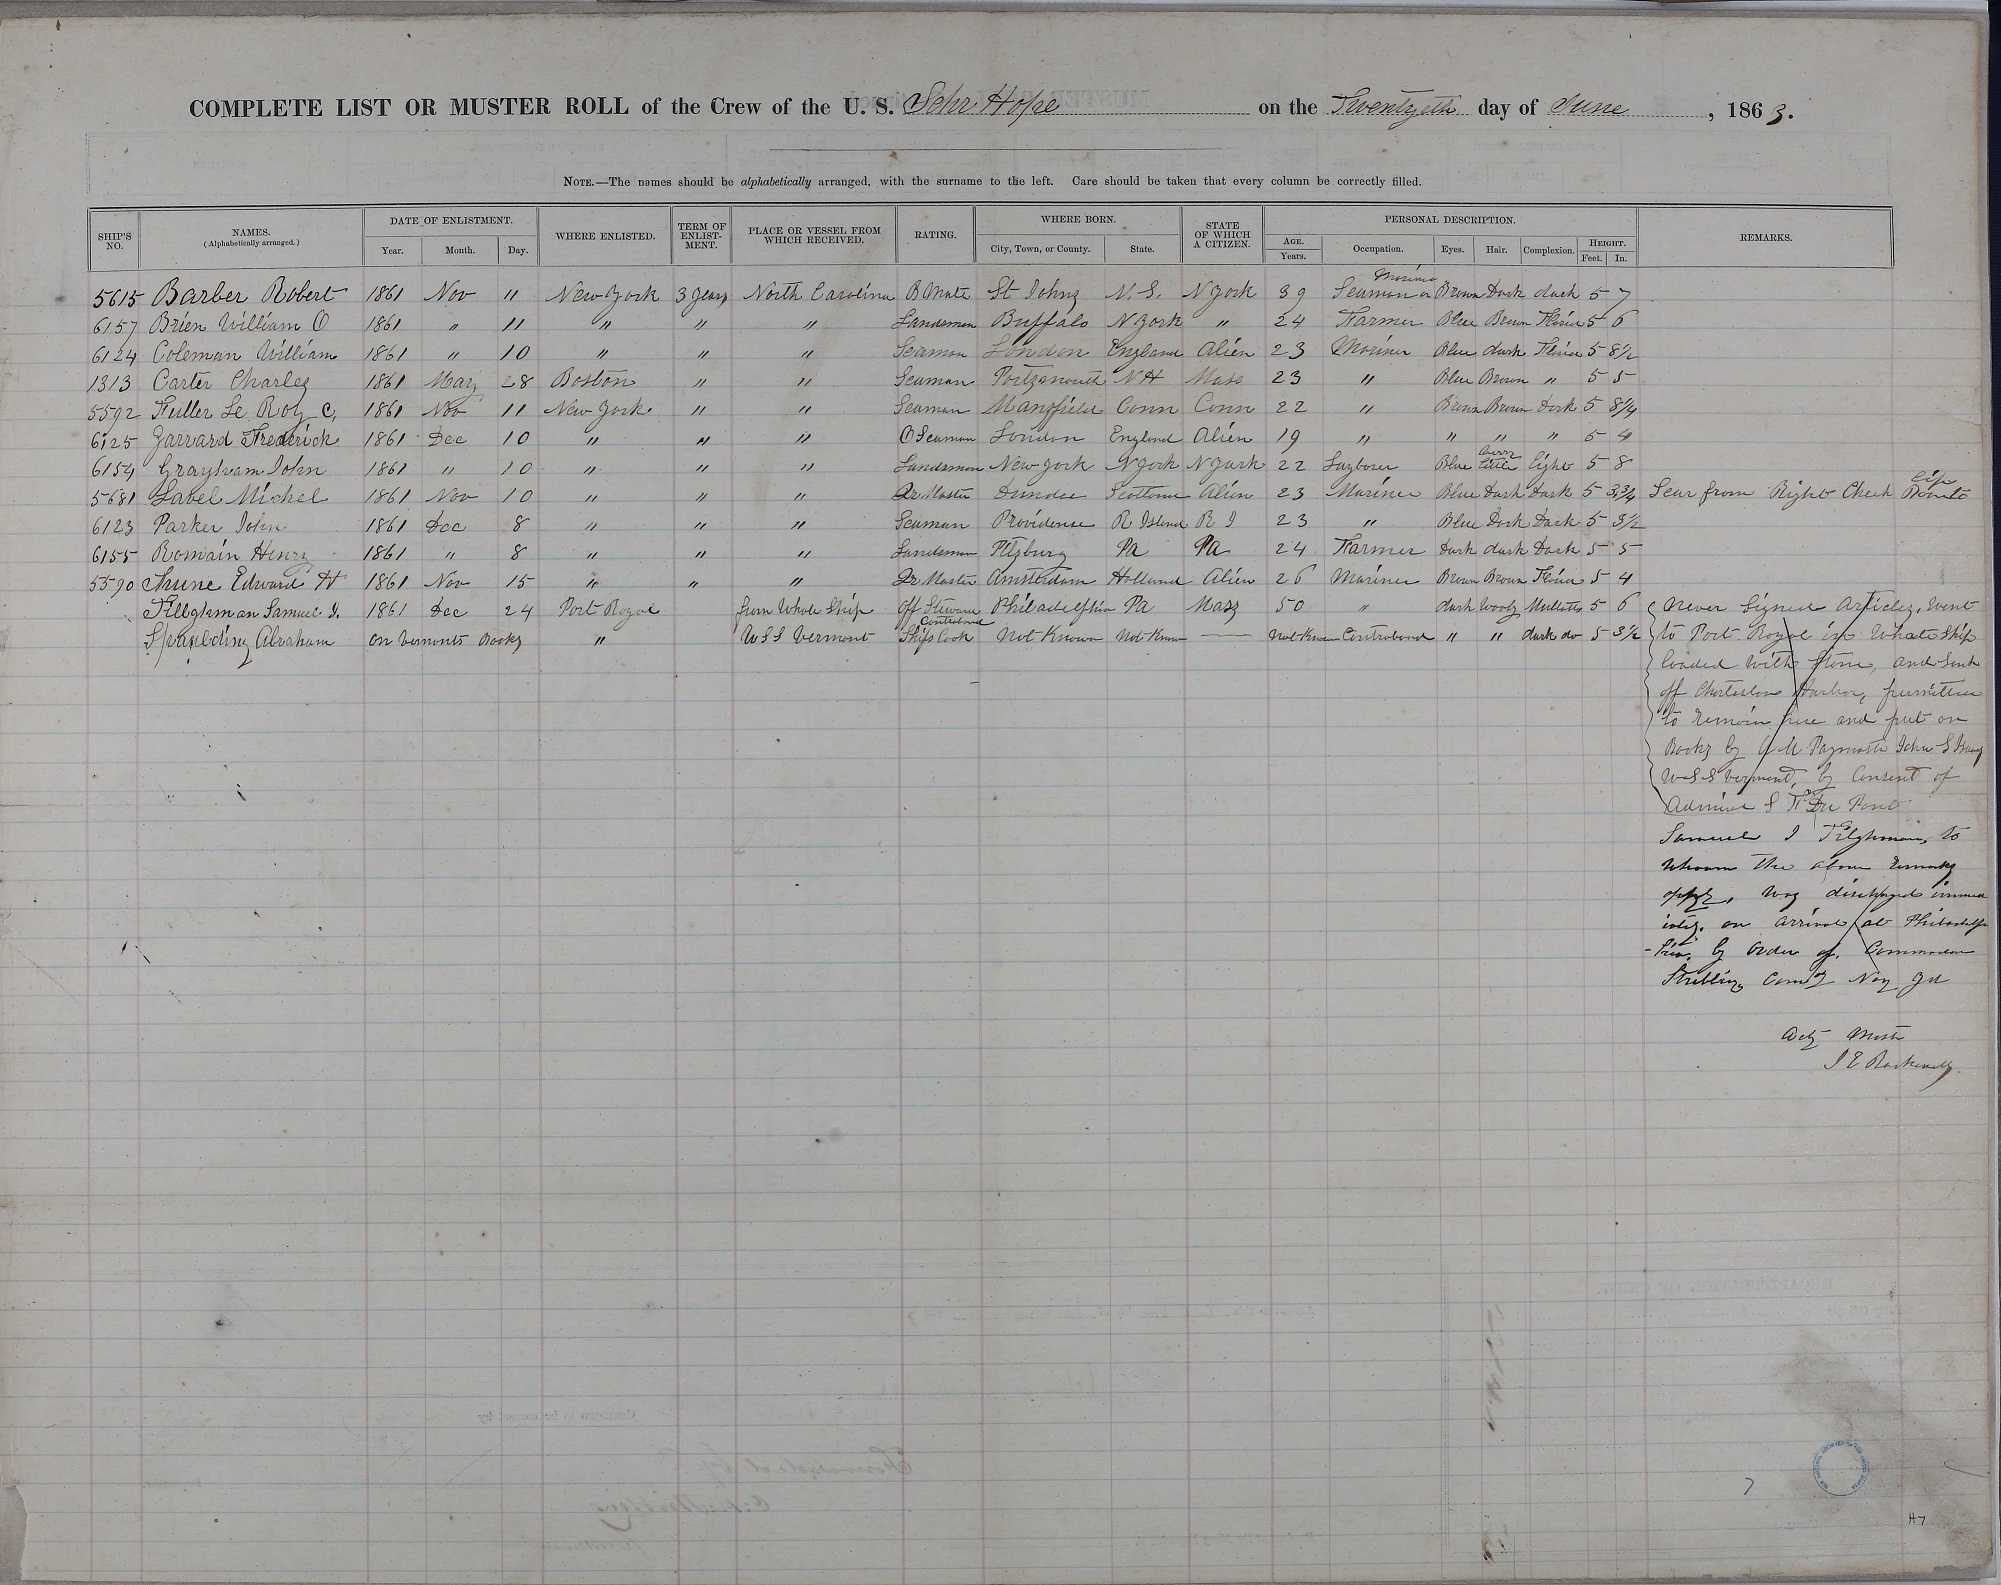 COMPLETE LIST OR MUSTER ROLL of the Crew of the U. S. Schr Hope on the Twentyeth day of June, 1863.
NOTE.—The names should be alphabetically arranged, with the surname to the left. Care should be taken that every column be correctly filled.
SHIP'S NO. NAMES. (Alphabetically arranged.) DATE OF ENLISTMENT. Year. Month. Day. WHERE ENLISTED. TERM OF ENLIST-MENT. PLACE OR VESSEL FROM WHICH RECEIVED. RATING. WHERE BORN. City, Town, or County. State. STATE OF WHICH A CITIZEN. PERSONAL DESCRIPTION. AGE. Years. Occupation. Eyes. Hair. Complexion. HEIGHT. Feet. In. REMARKS.
5615 Barber Robert 1861 Nov 11 New York 3 years North Carolina B Mate St Johns N. S. N York 39 Seaman or Mariner Brown Dark dark 5 7
6157 Brien William O 1861 " 11 " " " Landsman Buffalo N York " 24 Farmer Blue Brown 5 6
6124 Coleman William 1861 " 10 " " " Seaman London England Alien 23 Mariner Blue dark 5 8½
1313 Carter Charles 1861 May 28 Boston " " Seaman Portsmouth N H Mass 23 " Blue Brown " 5 5
5592 Fuller Le Roy C, 1861 Nov 11 New York " " Seaman Mansfield Conn Conn 22 " Brown Brown Dark 5 8¼
6125 Frederick 1861 Dec 10 " " " O Seaman London England Alien 19 " " " " 5 4
6154 Grayham John 1861 " 10 " " " Landsman New york N York N York 22 Layborer Blue light 5 8
5681 Lavel Michel 1861 Nov 10 " " " Qr Master Dundee Alien 23 Mariner Blue Dark Dark 5 3¾ Scar from Right Cheek lip
6123 Parker John 1861 Dec 8 " " " Seaman Providense R Island R I 23 " Blue Dark Dark 5 3½
6155 Romain Henry 1861 " 8 " " " Landsman Pitsburg Pa Pa 24 Farmer Dark dark Dark 5 5
5590 Edward H 1861 Nov 15 " " " Qr Master Amsterdam Holland Alien 26 Mariner Brown Brown 5 4
Tillghman Samuel I. 1861 Dec 24 Port Royal from Whale Ship Off Steward Philadelphia Pa Mass 50 " dark Wooly Mullatto 5 6 never Signed Articles, Went
Spaulding Abraham on Vermonts Books " U S S Vermont Contraband Ships Cook Not Known Not Known — Not Known Contraband " " dark do 5 3½ to Port Royal in Whale Ship
loaded with Stone, and Sunk
off Charleston Harbor, permitted
to remain here and put on
Books by Paymaster John S
U S S Vermont, by Consent of
Admiral S F Du Pont
Samuel I Tilghman, to
Whoom the above remarks
apply, was discharged immed
iatly, on arrival at Philadelp
-hia, by order of, Commodore
Stribling Comdg Navy Yd
Actg Mastr
J E Rockwell
H7